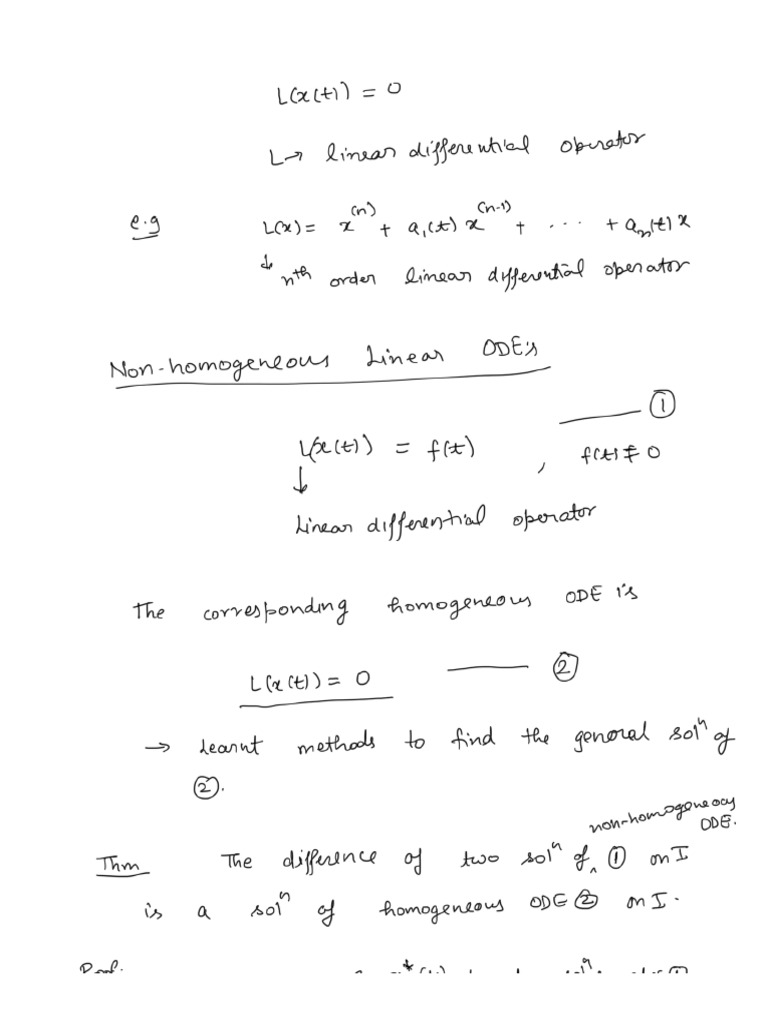 L(x(t)) = 0
L→ linear differential operator
e.g L(x) = x^(n) + a₁(t) x^(n-1) + ... + aₙ(t) x
↓ nth order linear differential operator
Non-homogeneous Linear ODE's
—— ①
L(x(t)) = f(t) , f(t) ≠ 0
↓
Linear differential operator
The corresponding homogeneous ODE is
L(x(t)) = 0 —— ②
→ Learnt methods to find the general solⁿ of
②.
non-homogeneous
ODE.
Thm The difference of two solⁿ of ‸ ① on I
is a solⁿ of homogeneous ODE ② on I.